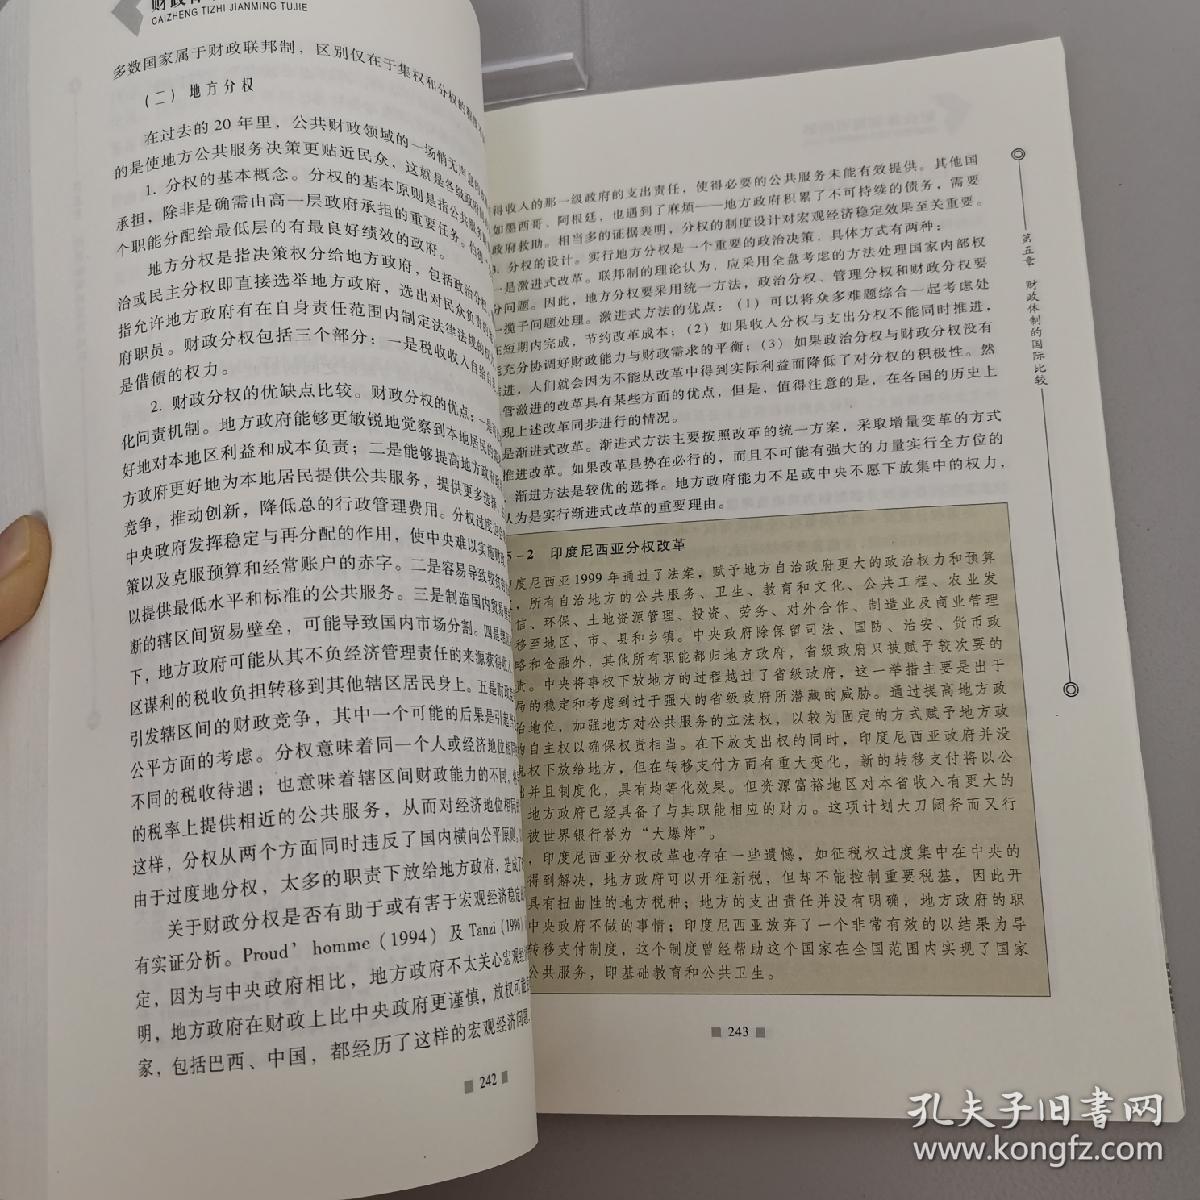 CAIZHENG TIZHI JIANMING TUJIE
多数国家属于财政联邦制，区别仅在于集权和分权的
（二）地方分权
在过去的20年里，公共财政领域的一场悄无
的是使地方公共服务决策更贴近民众，这就是各级政府
1. 分权的基本概念。分权的基本原则是指公共服务
承担，除非是确需由高一层政府承担的重要任务。
个职能分配给最低层的有最良好绩效的政府。
地方分权是指决策权分给地方政府，包括政治分权
治或民主分权即直接选举地方政府，选出对民众负责的
指允许地方政府有在自身责任范围内制定法律法规的权
府职员。财政分权包括三个部分：一是税收收入自给
是借债的权力。
2. 财政分权的优缺点比较。财政分权的优点：一是
化问责机制。地方政府能够更敏锐地觉察到本地居民的
好地对本地区利益和成本负责；二是能够提高地方政府
方政府更好地为本地居民提供公共服务，提供更多选择
竞争，推动创新，降低总的行政管理费用。分权过度
中央政府发挥稳定与再分配的作用，使中央难以实施财
策以及克服预算和经常账户的赤字。二是容易导致
以提供最低水平和标准的公共服务。三是制造国内贸易
断的辖区间贸易壁垒，可能导致国内市场分割。四是
下，地方政府可能从其不负经济管理责任的来源获得收
区谋利的税收负担转移到其他辖区居民身上。五是财政
引发辖区间的财政竞争，其中一个可能的后果是引起
公平方面的考虑。分权意味着同一个人或经济地位相同
不同的税收待遇；也意味着辖区间财政能力的不同，
的税率上提供相近的公共服务，从而对经济地位相同
这样，分权从两个方面同时违反了国内横向公平原则。
由于过度地分权，太多的职责下放给地方政府，造成了
关于财政分权是否有助于或有害于宏观经济稳定
有实证分析。Proud’homme（1994）及Tanzi（1996）
定，因为与中央政府相比，地方政府不太关心宏观经
明，地方政府在财政上比中央政府更谨慎，放权可能
家，包括巴西、中国，都经历了这样的宏观经济问题。
242
得收入的那一级政府的支出责任，使得必要的公共服务未能有效提供。其他国
如墨西哥、阿根廷，也遇到了麻烦——地方政府积累了不可持续的债务，需要
政府救助。相当多的证据表明，分权的制度设计对宏观经济稳定效果至关重要。
3. 分权的设计。实行地方分权是一个重要的政治决策，具体方式有两种：
一是激进式改革。联邦制的理论认为，应采用全盘考虑的方法处理国家内部权
分问题。因此，地方分权要采用统一方法，政治分权、管理分权和财政分权要
一揽子问题处理。激进式方法的优点：（1）可以将众多难题综合一起考虑处
在短期内完成，节约改革成本；（2）如果收人分权与支出分权不能同时推进，
能充分协调好财政能力与财政需求的平衡；（3）如果政治分权与财政分权没有
进，人们就会因为不能从改革中得到实际利益而降低了对分权的积极性。然
管激进的改革具有某些方面的优点，但是，值得注意的是，在各国的历史上
现上述改革同步进行的情况。
是渐进式改革。渐进式方法主要按照改革的统一方案，采取增量变革的方式
推进改革。如果改革是势在必行的，而且不可能有强大的力量实行全方位的
，渐过方法是较优的选择。地方政府能力不足或中央不愿下放集中的权力，
认为是实行渐进式改革的重要理由。
5－2 印度尼西亚分权改革
度尼西亚1999年通过了法案，赋予地方自治政府更大的政治权力和预算
，所有自治地方的公共服务、卫生、教育和文化、公共工程、农业发
信、环保、土地资源管理、投资、劳务、对外合作、制造业及商业管理
移至地区、市、县和乡镇。中央政府除保留司法、国防、治安、货币政
略和金融外，其他所有职能都归地方政府，省级政府只被赋予较次要的
责。中央将事权下放地方的过程越过了省级政府，这一举措主要是出于
局的稳定和考虑到过于强大的省级政府所潜藏的威胁。通过提高地方政
治地位，加强地方对公共服务的立法权，以较为固定的方式赋予地方政
的自主权以确保权责相当。在下放支出权的同时，印度尼西亚政府并没
税权下放给地方，但在转移支付方面有重大变化，新的转移支付将以公
并且制度化，具有均等化效果。但资源富裕地区对本省收入有更大的
地方政府已经具备了与其职能相应的财力。这项计划大刀阔斧而又行
被世界银行誉为“大爆炸”。
，印度尼西亚分权改革也存在一些遗憾，如征税权过度集中在中央的
得到解决，地方政府可以开征新税，但却不能控制重要税基，因此开
具有扭曲性的地方税种；地方的支出责任并没有明确，地方政府的职
中央政府不做的事情；印度尼西亚放弃了一个非常有效的以结果为导
转移支付制度，这个制度曾经帮助这个国家在全国范围内实现了国家
公共服务，即基础教育和公共卫生。
243
第五章 财政体制的国际比较
孔夫子旧书网
www.kongfz.com